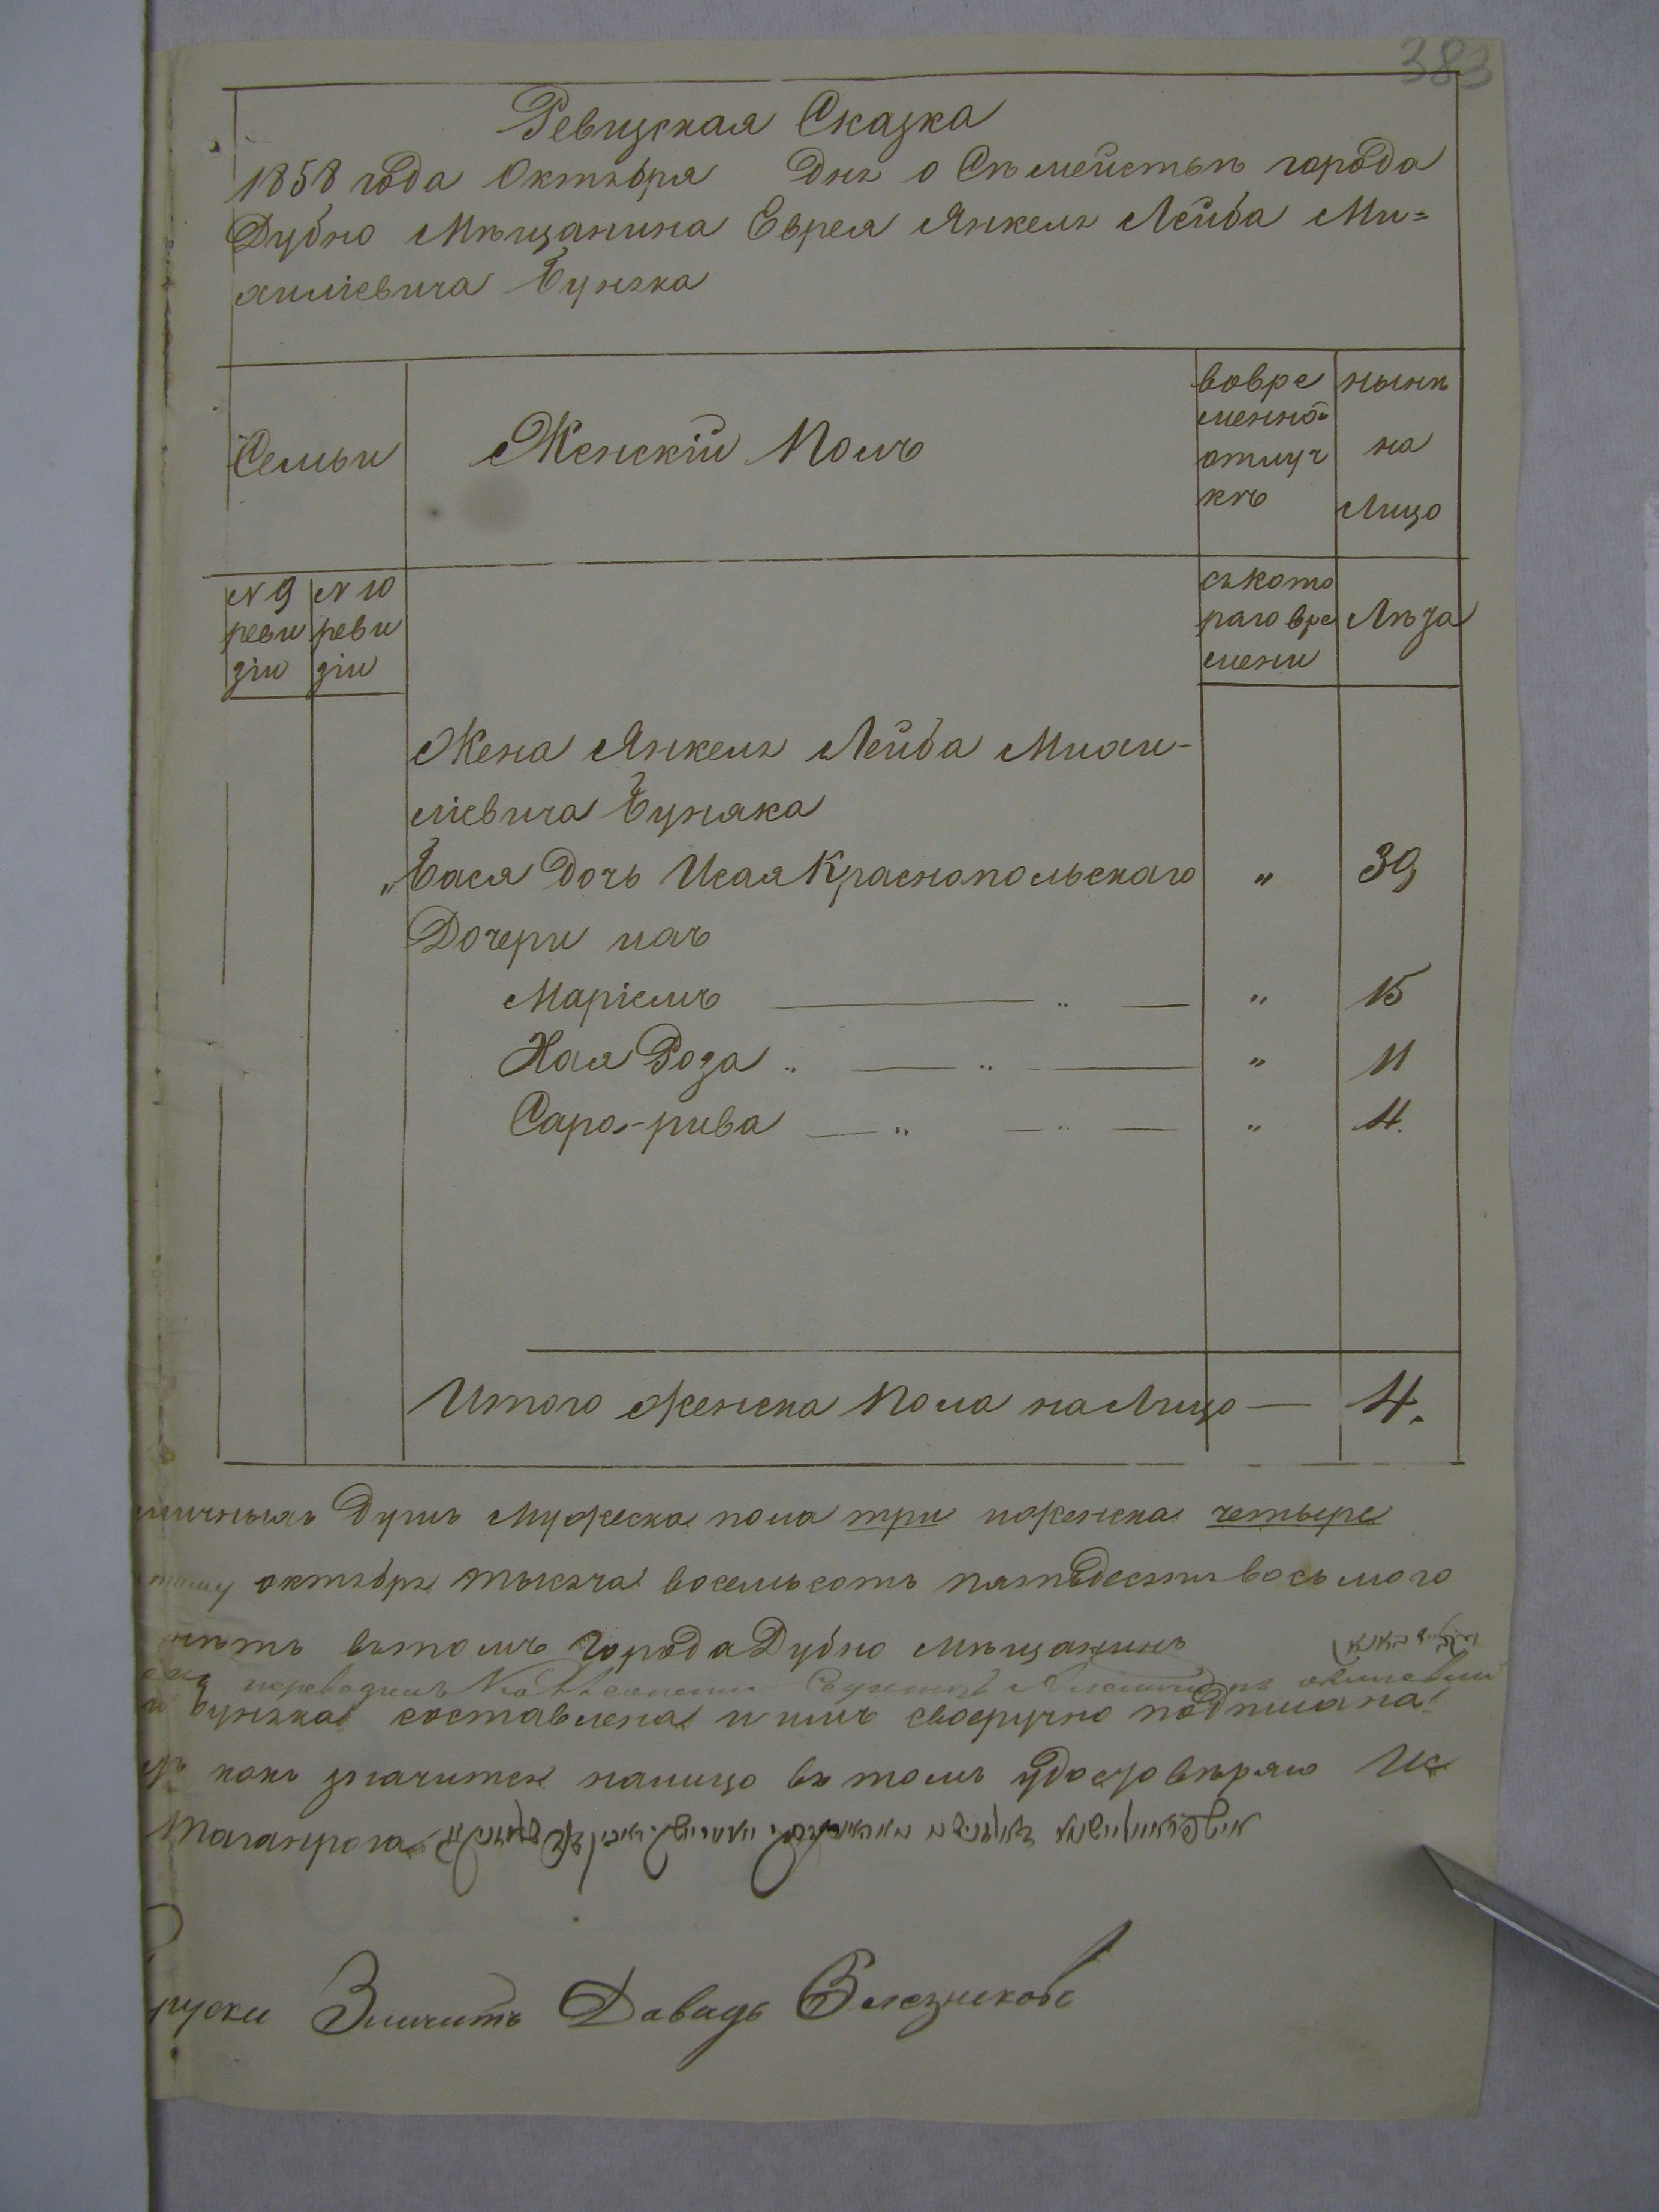 383
Ревизская Сказка
1858 года Октября дня о Семействѣ города
Дубно Мѣщанина Еврея Янкель Лейба Ми=
хиліевича Буняка
Семьи
Женскій Полъ
вовре
менной
отлуч
кѣ
нынѣ
на
Лицо
N 9
реви
зіи
N 10
реви
зіи
съ кото
раго вре
мени
Лѣта
Жена Янкель Лейба Михи-
ліевича Буняка
„ Бася дочь Исая Краснопольскаго „ 39
Дочери ихъ
Маріемъ „ „ 15
Хая Роза „ „ „ 11
Сара-рива „ „ „ 4.
Итого женска пола на Лицо — 4.
личныхъ Душъ мужеска пола три и женска четыре
октября тысяча восемьсотъ пятьдесятъ восьмого
вътомъ города Дубно мѣщанинъ
Буняка составлена и имъ своеручно подписана
какъ значится налицо въ томъ удостовѣряю
Таганрога
руски Значитъ Давидъ